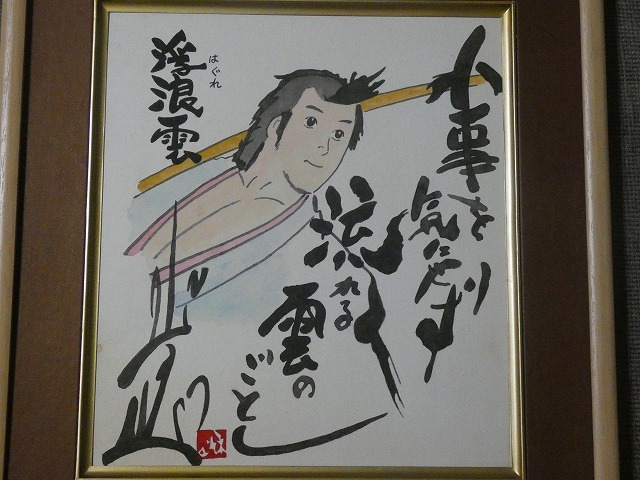 小事を
気にせず
流れる
雲の
ごとし
浮浪雲
はぐれ